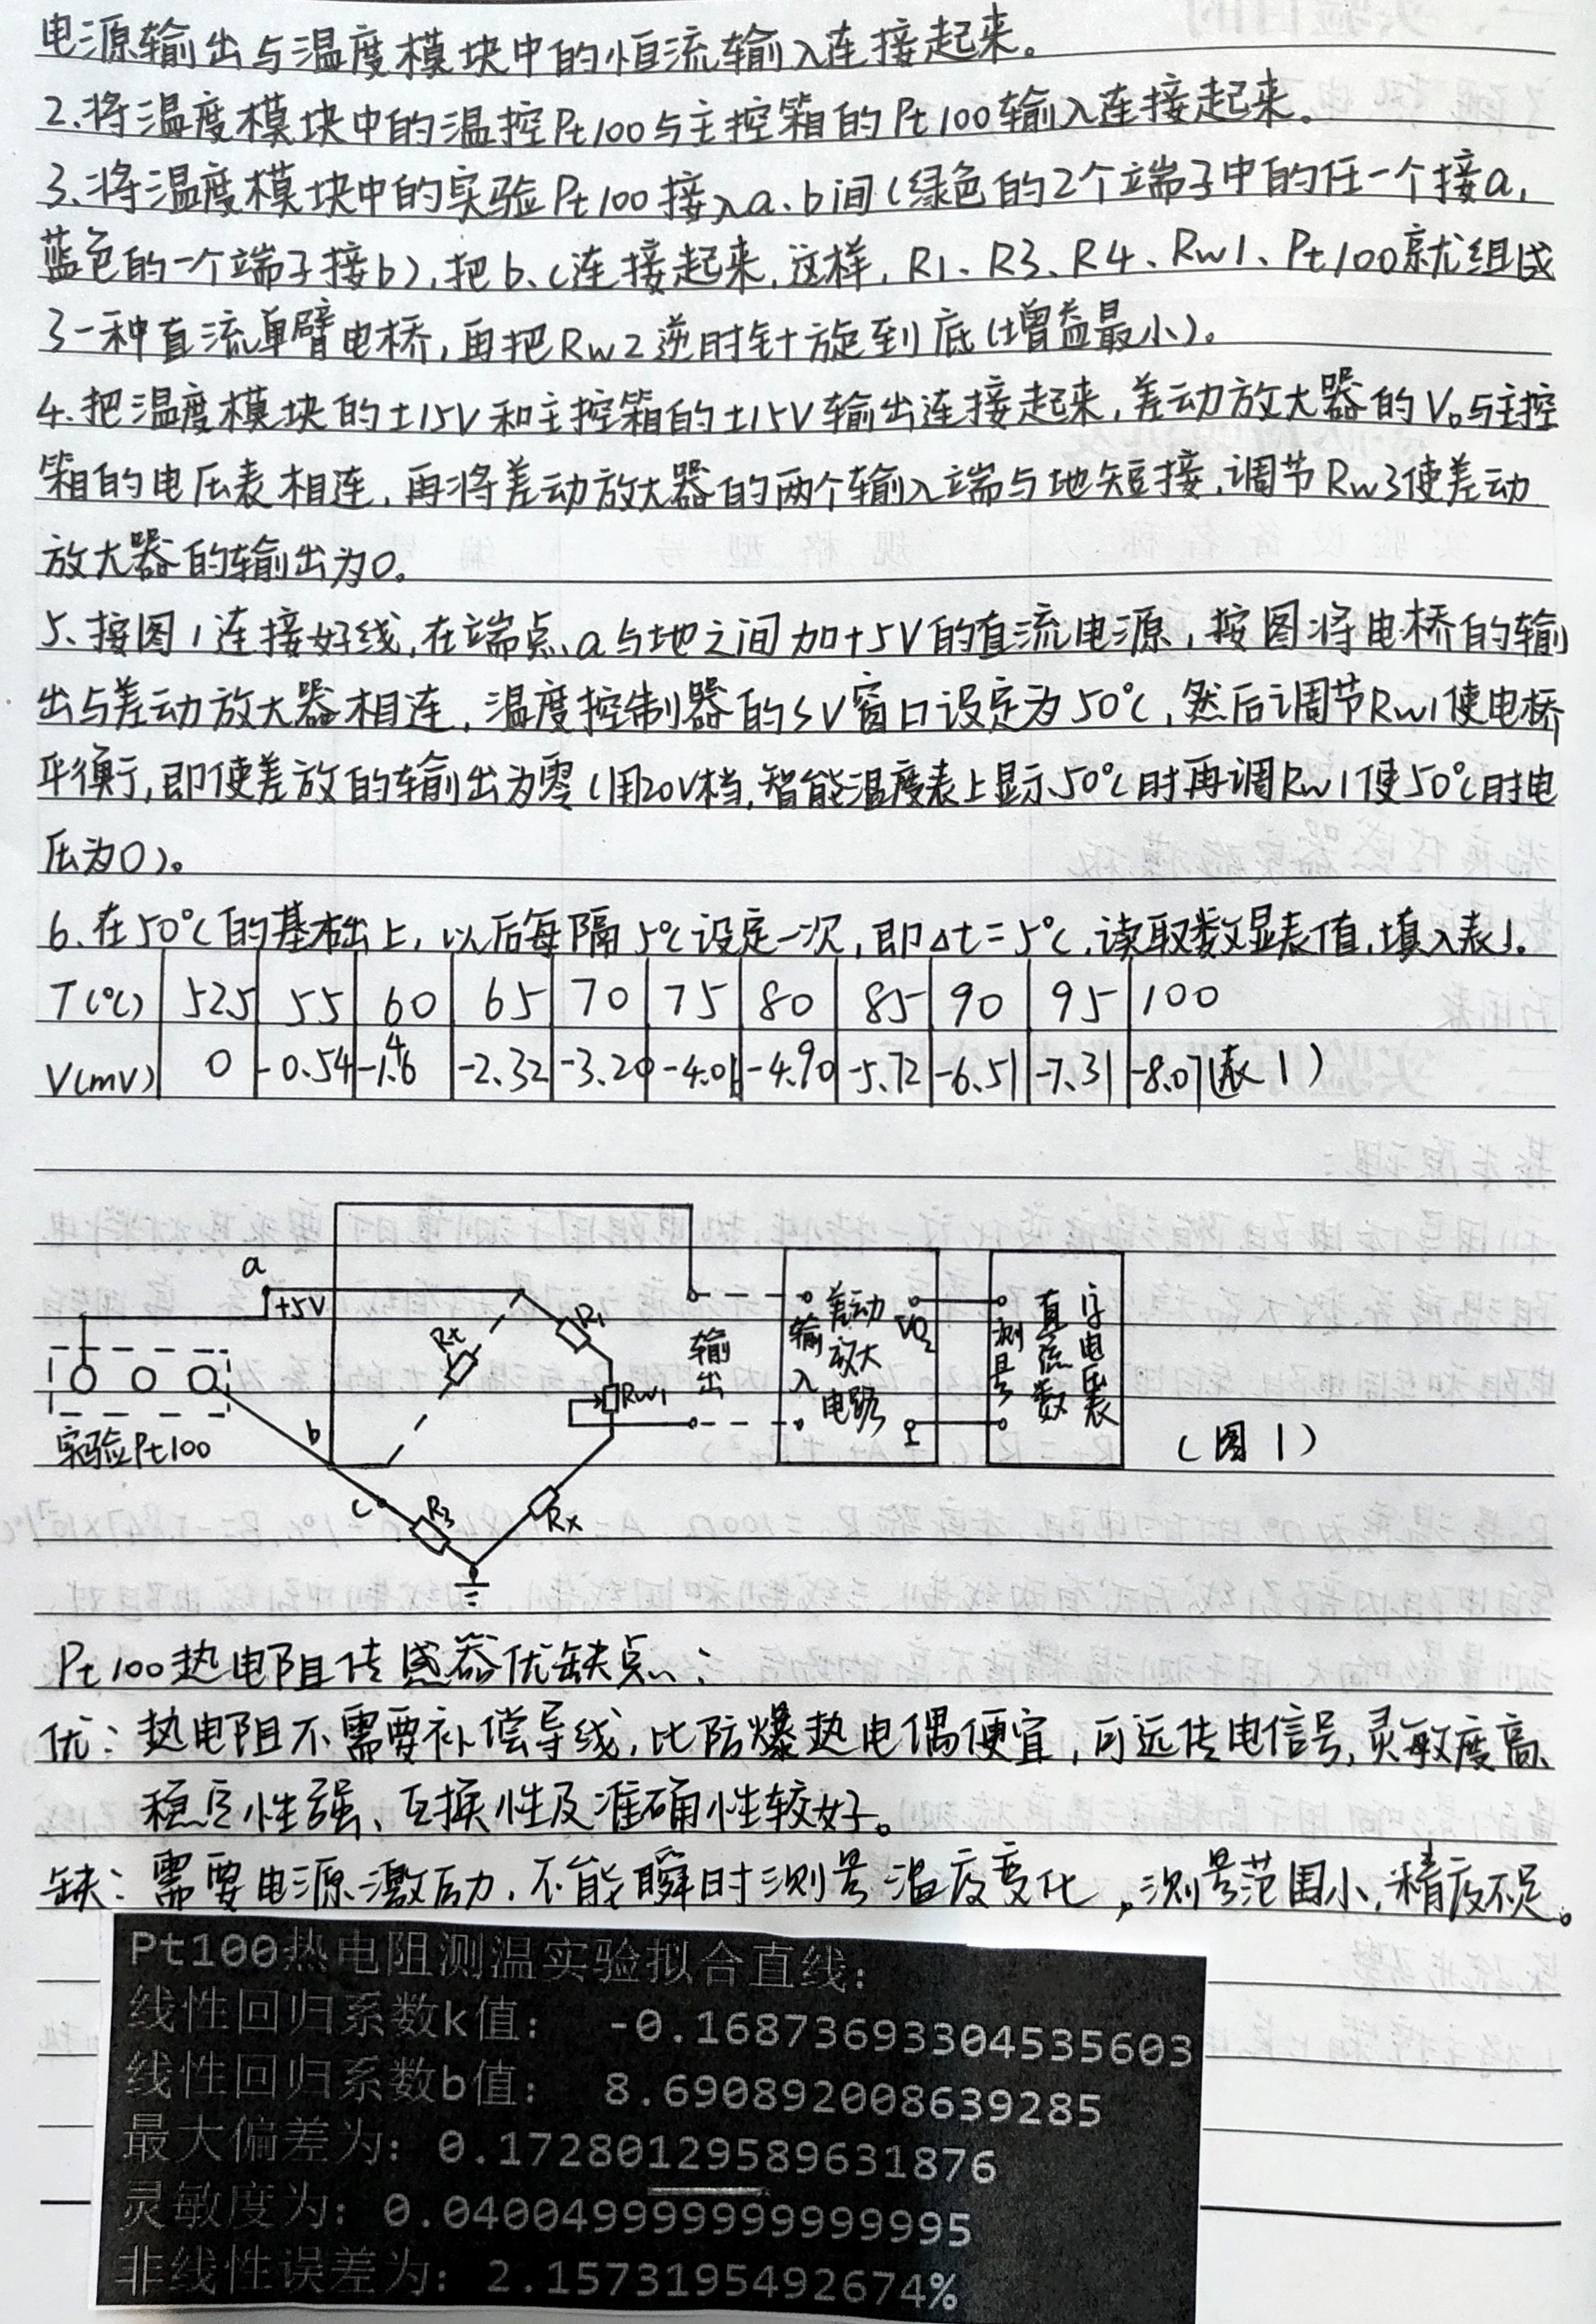 电源输出与温度模块中的恒流输入连接起来。
2.将温度模块中的温控Pt100与主控箱的Pt100输入连接起来。
3.将温度模块中的实验Pt100接入a、b间(绿色的2个端子中的任一个接a,
蓝色的一个端子接b),把b、c连接起来,这样,R1、R3、R4、Rw1、Pt100就组成
了一种直流单臂电桥,再把Rw2逆时针旋到底(增益最小)。
4.把温度模块的±15V和主控箱的±15V输出连接起来,差动放大器的Vo与主控
箱的电压表相连,再将差动放大器的两个输入端与地短接,调节Rw3使差动
放大器的输出为0。
5、按图1连接好线,在端点a与地之间加+5V的直流电源,按图将电桥的输
出与差动放大器相连,温度控制器的SV窗口设定为50℃,然后调节Rw1使电桥
平衡,即使差放的输出为零(用20V档,智能温度表上显示50℃时再调Rw1使50℃时电
压为0)。
6、在50℃的基础上,以后每隔5℃设定一次,即Δt=5℃,读取数显表值,填入表1。
T(℃) 52.5 55 60 65 70 75 80 85 90 95 100
V(mV) 0 -0.54 -1.46 -2.32 -3.20 -4.01 -4.90 -5.72 -6.51 -7.31 -8.07 (表1)
a
+5V
Rt
R1
Rw1
输出
输入
差动放大电路
VO2
测量
直流数字电压表
实验Pt100
b
c
R3
Rx
(图1)
Pt100热电阻传感器优缺点:
优:热电阻不需要补偿导线,比防爆热电偶便宜,可远传电信号,灵敏度高、
稳定性强、互换性及准确性较好。
缺:需要电源激励,不能瞬时测量温度变化,测量范围小,精度不足。
Pt100热电阻测温实验拟合直线:
线性回归系数k值: -0.16873693304535603
线性回归系数b值: 8.690892008639285
最大偏差为: 0.17280129589631876
灵敏度为: 0.040049999999999995
非线性误差为: 2.1573195492674%